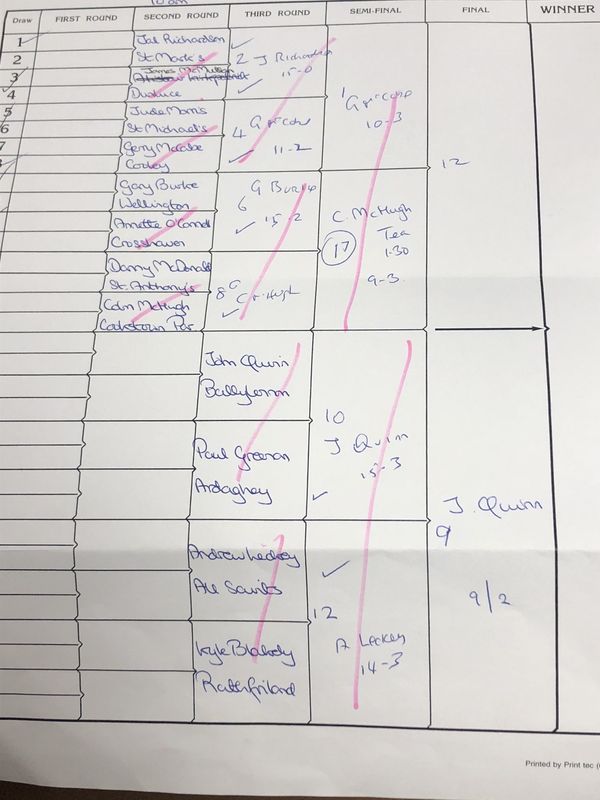 10am
Draw FIRST ROUND SECOND ROUND THIRD ROUND SEMI-FINAL FINAL WINNER
1
2
3
4
5
6
7
Jak Richardson
St. Mark's
James McMullan
Dunluce
Jude Morris
St. Michael's
Gerry McCabe
Cooley
Gary Burke
Wellington
Annette O'Connell
Crosshaven
Danny McDonald
St. Anthony's
Colm McHugh
Cookstown Par
2 J Richardson
15-0
4
11-2
G Burke
6
15-2
8
John Quinn
Ballyferon
Paul Greenan
Ardaghey
Andrew Leckey
All Saints
Kyle Blakely
Rathfriland
1
10-3
C. McHugh
17
Tea
1.30
9-3
10
J Quinn
15-3
12
A Leckey
14-3
12
J. Quinn
9
9/2
Printed by Print tec